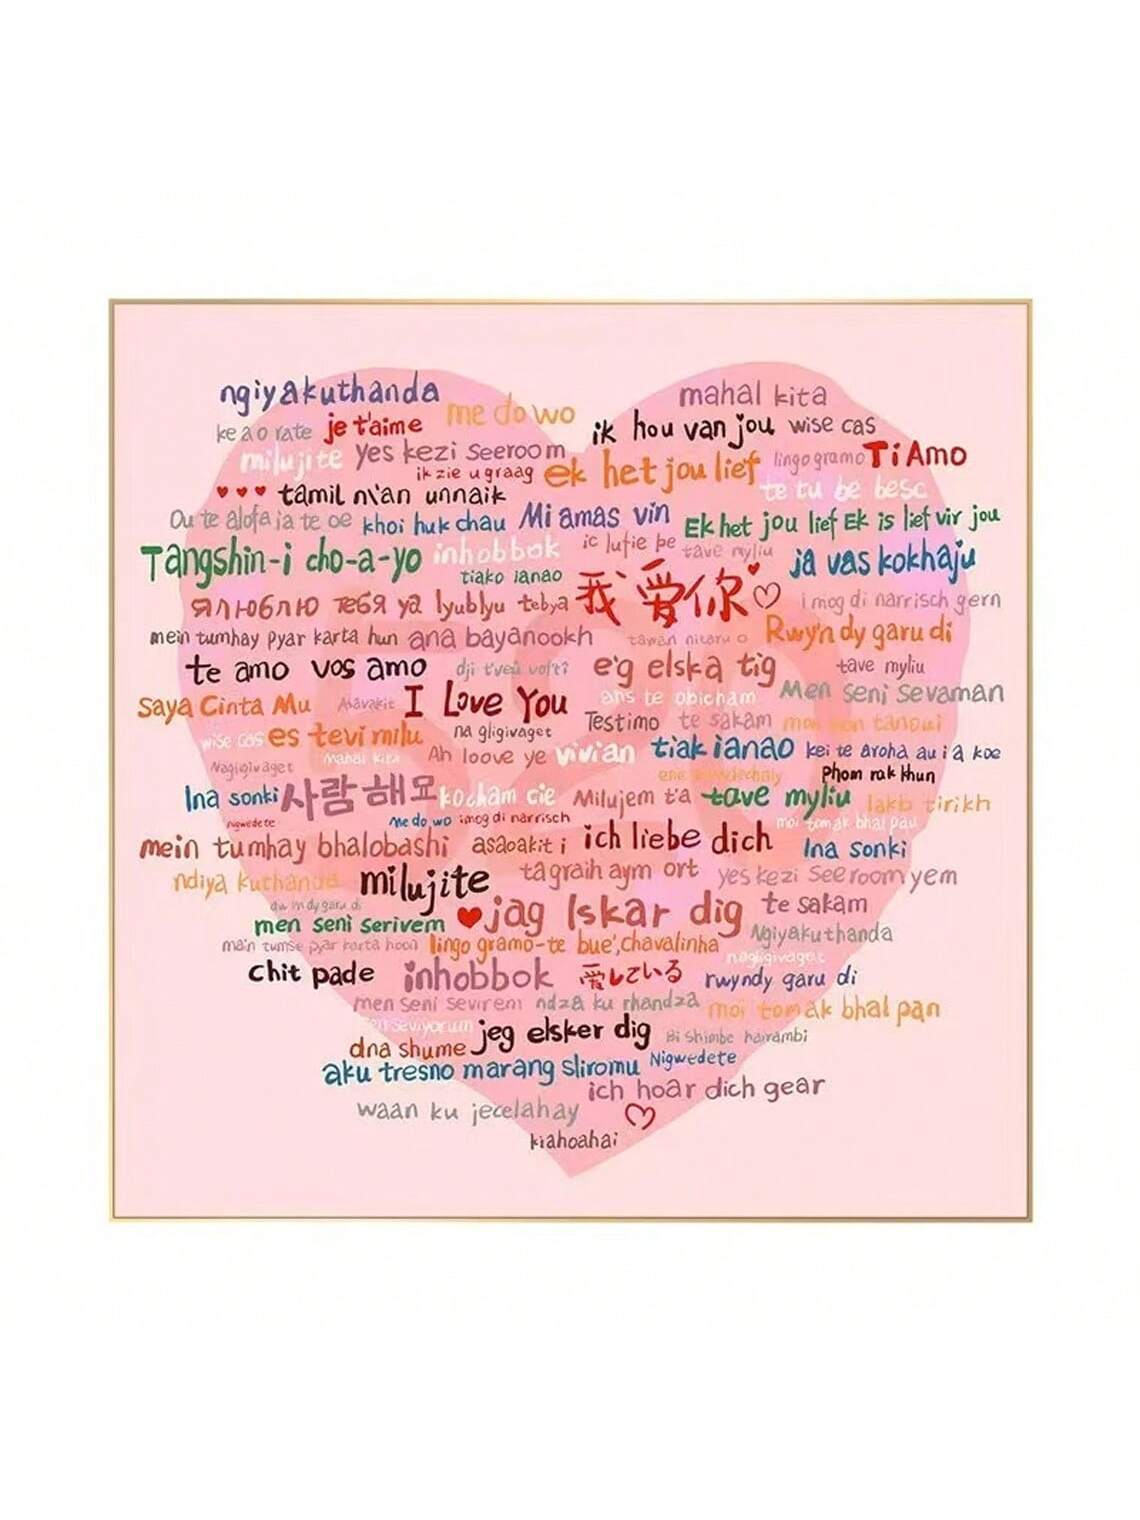 ngiyakuthanda me do wo mahal kita
ke a o rate je t'aime ik hou van jou wise cas
milujite yes kezi seeroom ik zie u graag ek het jou lief lingo gramo Ti Amo
tamil n'an unnaik te tu be besc
Ou te alofa ia te oe khoi huk chau Mi amas vin Ek het jou lief Ek is lief vir jou
Tangshin-i cho-a-yo inhobbok ic lufie þe tave myliu ja vas kokhaju
tiako ianao 我爱你
Я люблю тебя ya lyublyu tebya i mog di narrisch gern
mein tumhay pyar karta hun ana bayanookh tawan nitaru o Rwy'n dy garu di
te amo vos amo dji t'veû volti e'g elska tig tave myliu
Saya Cinta Mu Asavakit I Love You ahs te obicham Men seni sevaman
wise cas es tevi milu na gligivaget Testimo te sakam
Nagligivaget Mahal kita Ah loove ye vivian tiak ianao kei te aroha au i a koe
Phom rak khun
Ina sonki 사람해요 kocham cie Milujem t'a tave myliu
nigwedete me do wo imog di narrisch moi tomak bhal pau
mein tumhay bhalobashi asaoakit i ich liebe dich Ina sonki
ndiya kuthanda milujite ta graih aym ort yes kezi See room yem
men seni serivem jag Iskar dig te sakam
main tumse pyar karta hoon lingo gramo-te bue',chavalinha Ngiyakuthanda
chit pade inhobbok 愛している nagligivaget rwyndy garu di
men seni sevirem ndza ku rhandza moi tomak bhal pan
sen seviyorum jeg elsker dig
dna shume
aku tresno marang sliromu Nigwedete
ich hoar dich gear
waan ku jecelahay
kiahoahai